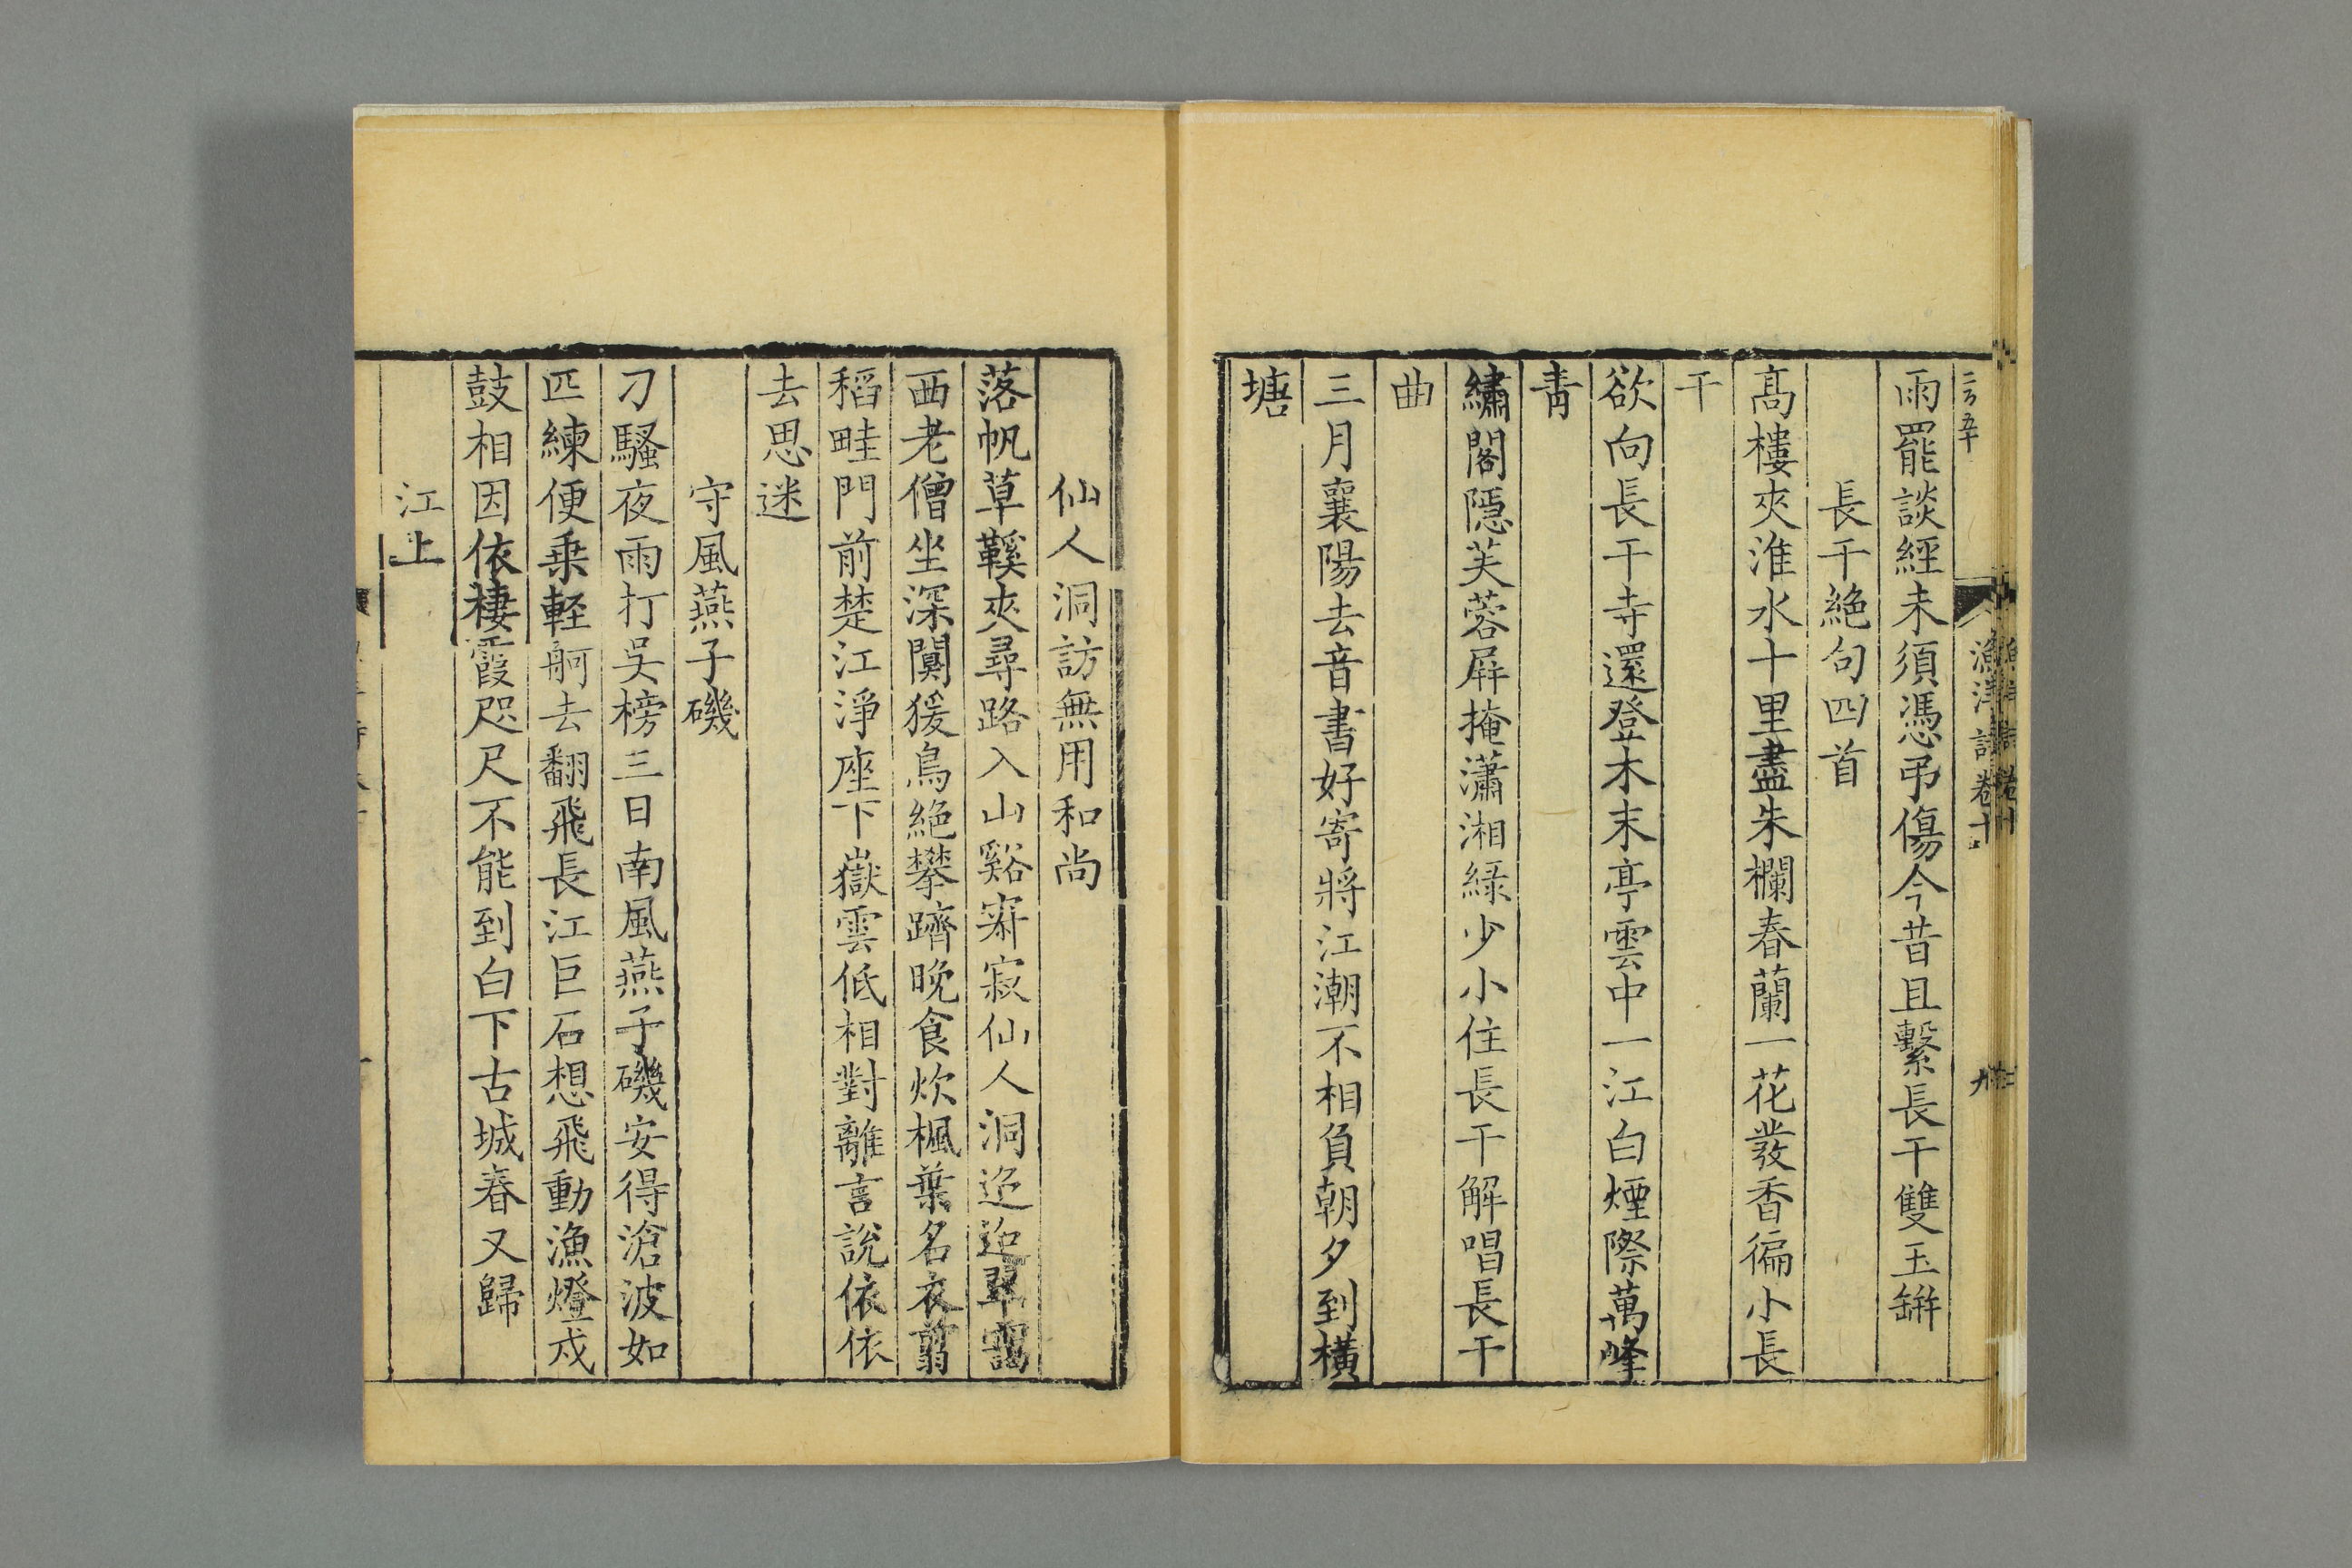 漁洋詩卷十
九
雨罷談經未須憑弔傷今昔且繫長干雙玉缾
長干絕句四首
高樓夾淮水十里盡朱欄春蘭一花發香徧小長
干
欲向長干寺還登木末亭雲中一江白煙際萬峰
青
繡閣隱芙蓉屛掩瀟湘綠少小住長干解唱長干
曲
三月襄陽去音書好寄將江潮不相負朝夕到橫
塘
仙人洞訪無用和尚
落帆草鞵夾尋路入山谿寂寂仙人洞迢迢翠靄
西老僧坐深闃猨鳥絕攀躋晚食炊楓葉名衣翦
稻畦門前楚江淨座下嶽雲低相對離言說依依
去思迷
守風燕子磯
刁騷夜雨打吳榜三日南風燕子磯安得滄波如
匹練便乗輕舸去翻飛長江巨石想飛動漁燈戍
鼓相因依棲霞咫尺不能到白下古城春又歸
江上